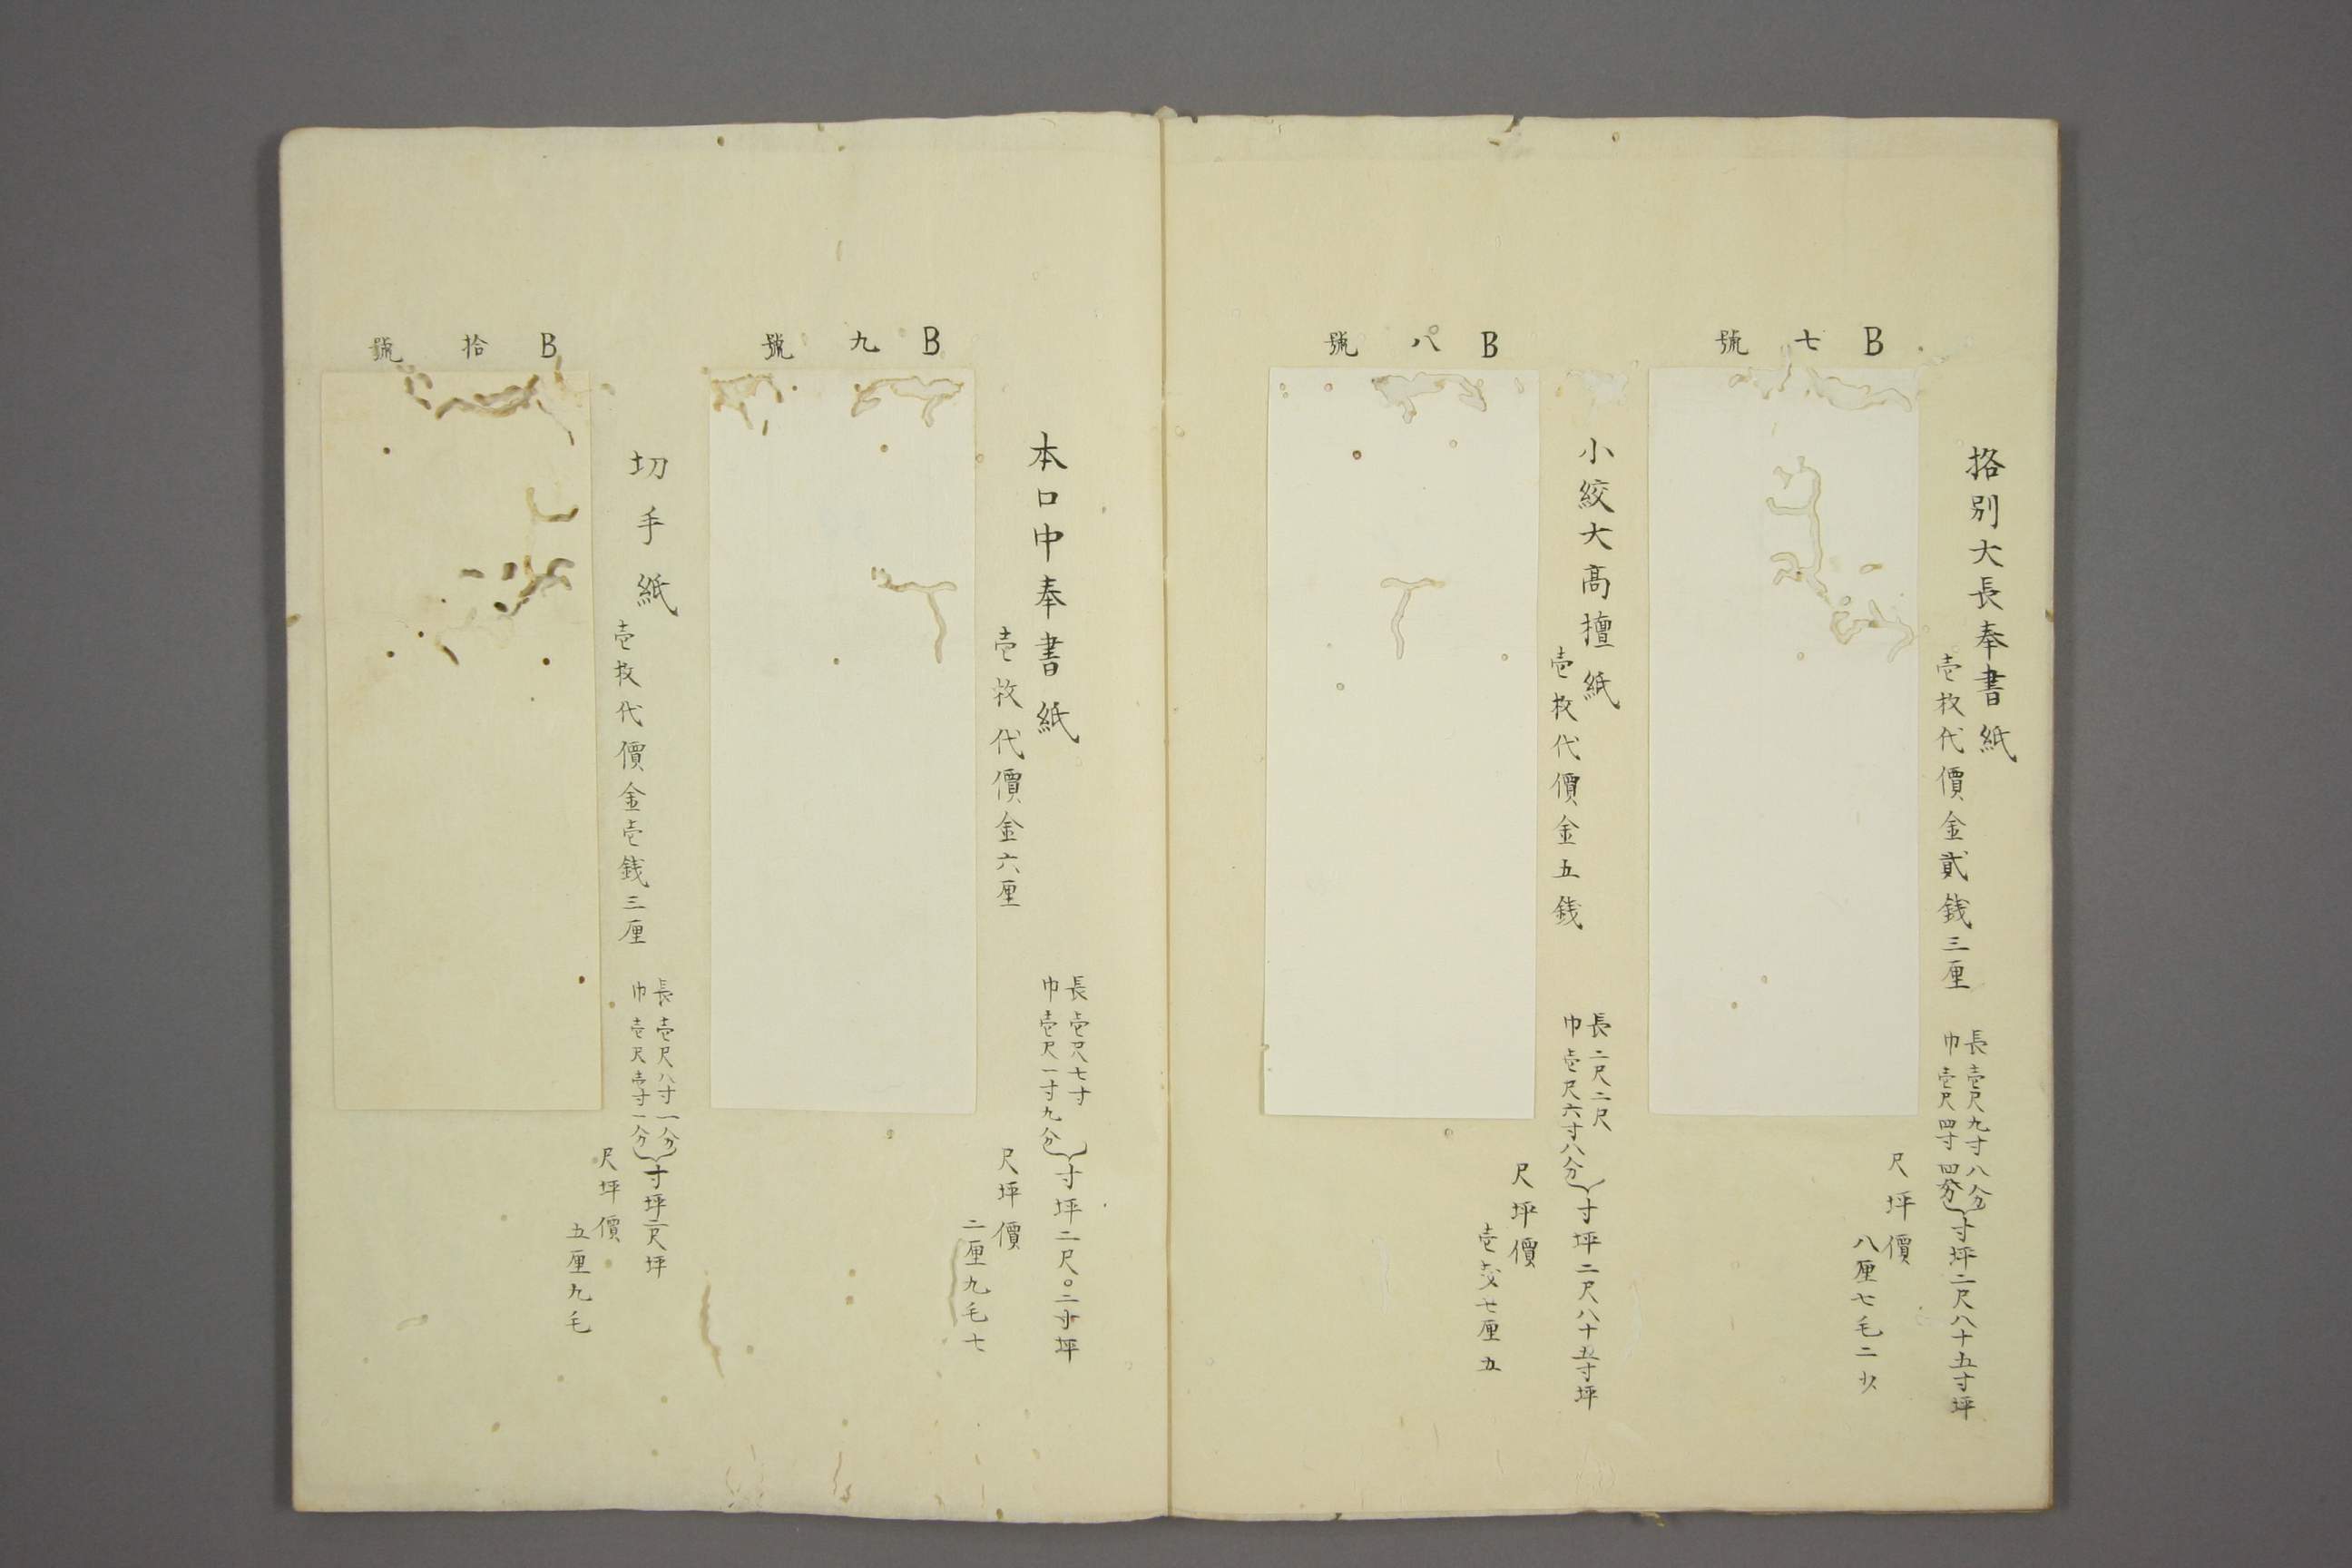 B七號
挌別大長奉書紙
壱枚代價金貳銭三厘
長壱尺九寸八分
巾壱尺四寸四分
寸坪二尺八十五寸坪
尺坪價
八厘七毛二
B八號
小絞大高擅紙
壱枚代價金五銭
長二尺二尺
巾壱尺六寸八分
寸坪二尺八十五寸坪
尺坪價
壱銭七厘五
B九號
本口中奉書紙
壱枚代價金六厘
長壱尺七寸
巾壱尺一寸九分
寸坪二尺〇二寸坪
尺坪價
二厘九毛七
B拾號
切手紙
壱枚代價金壱銭三厘
長壱尺八寸一分
巾壱尺壱寸一分
寸坪二尺坪
尺坪價
五厘九毛